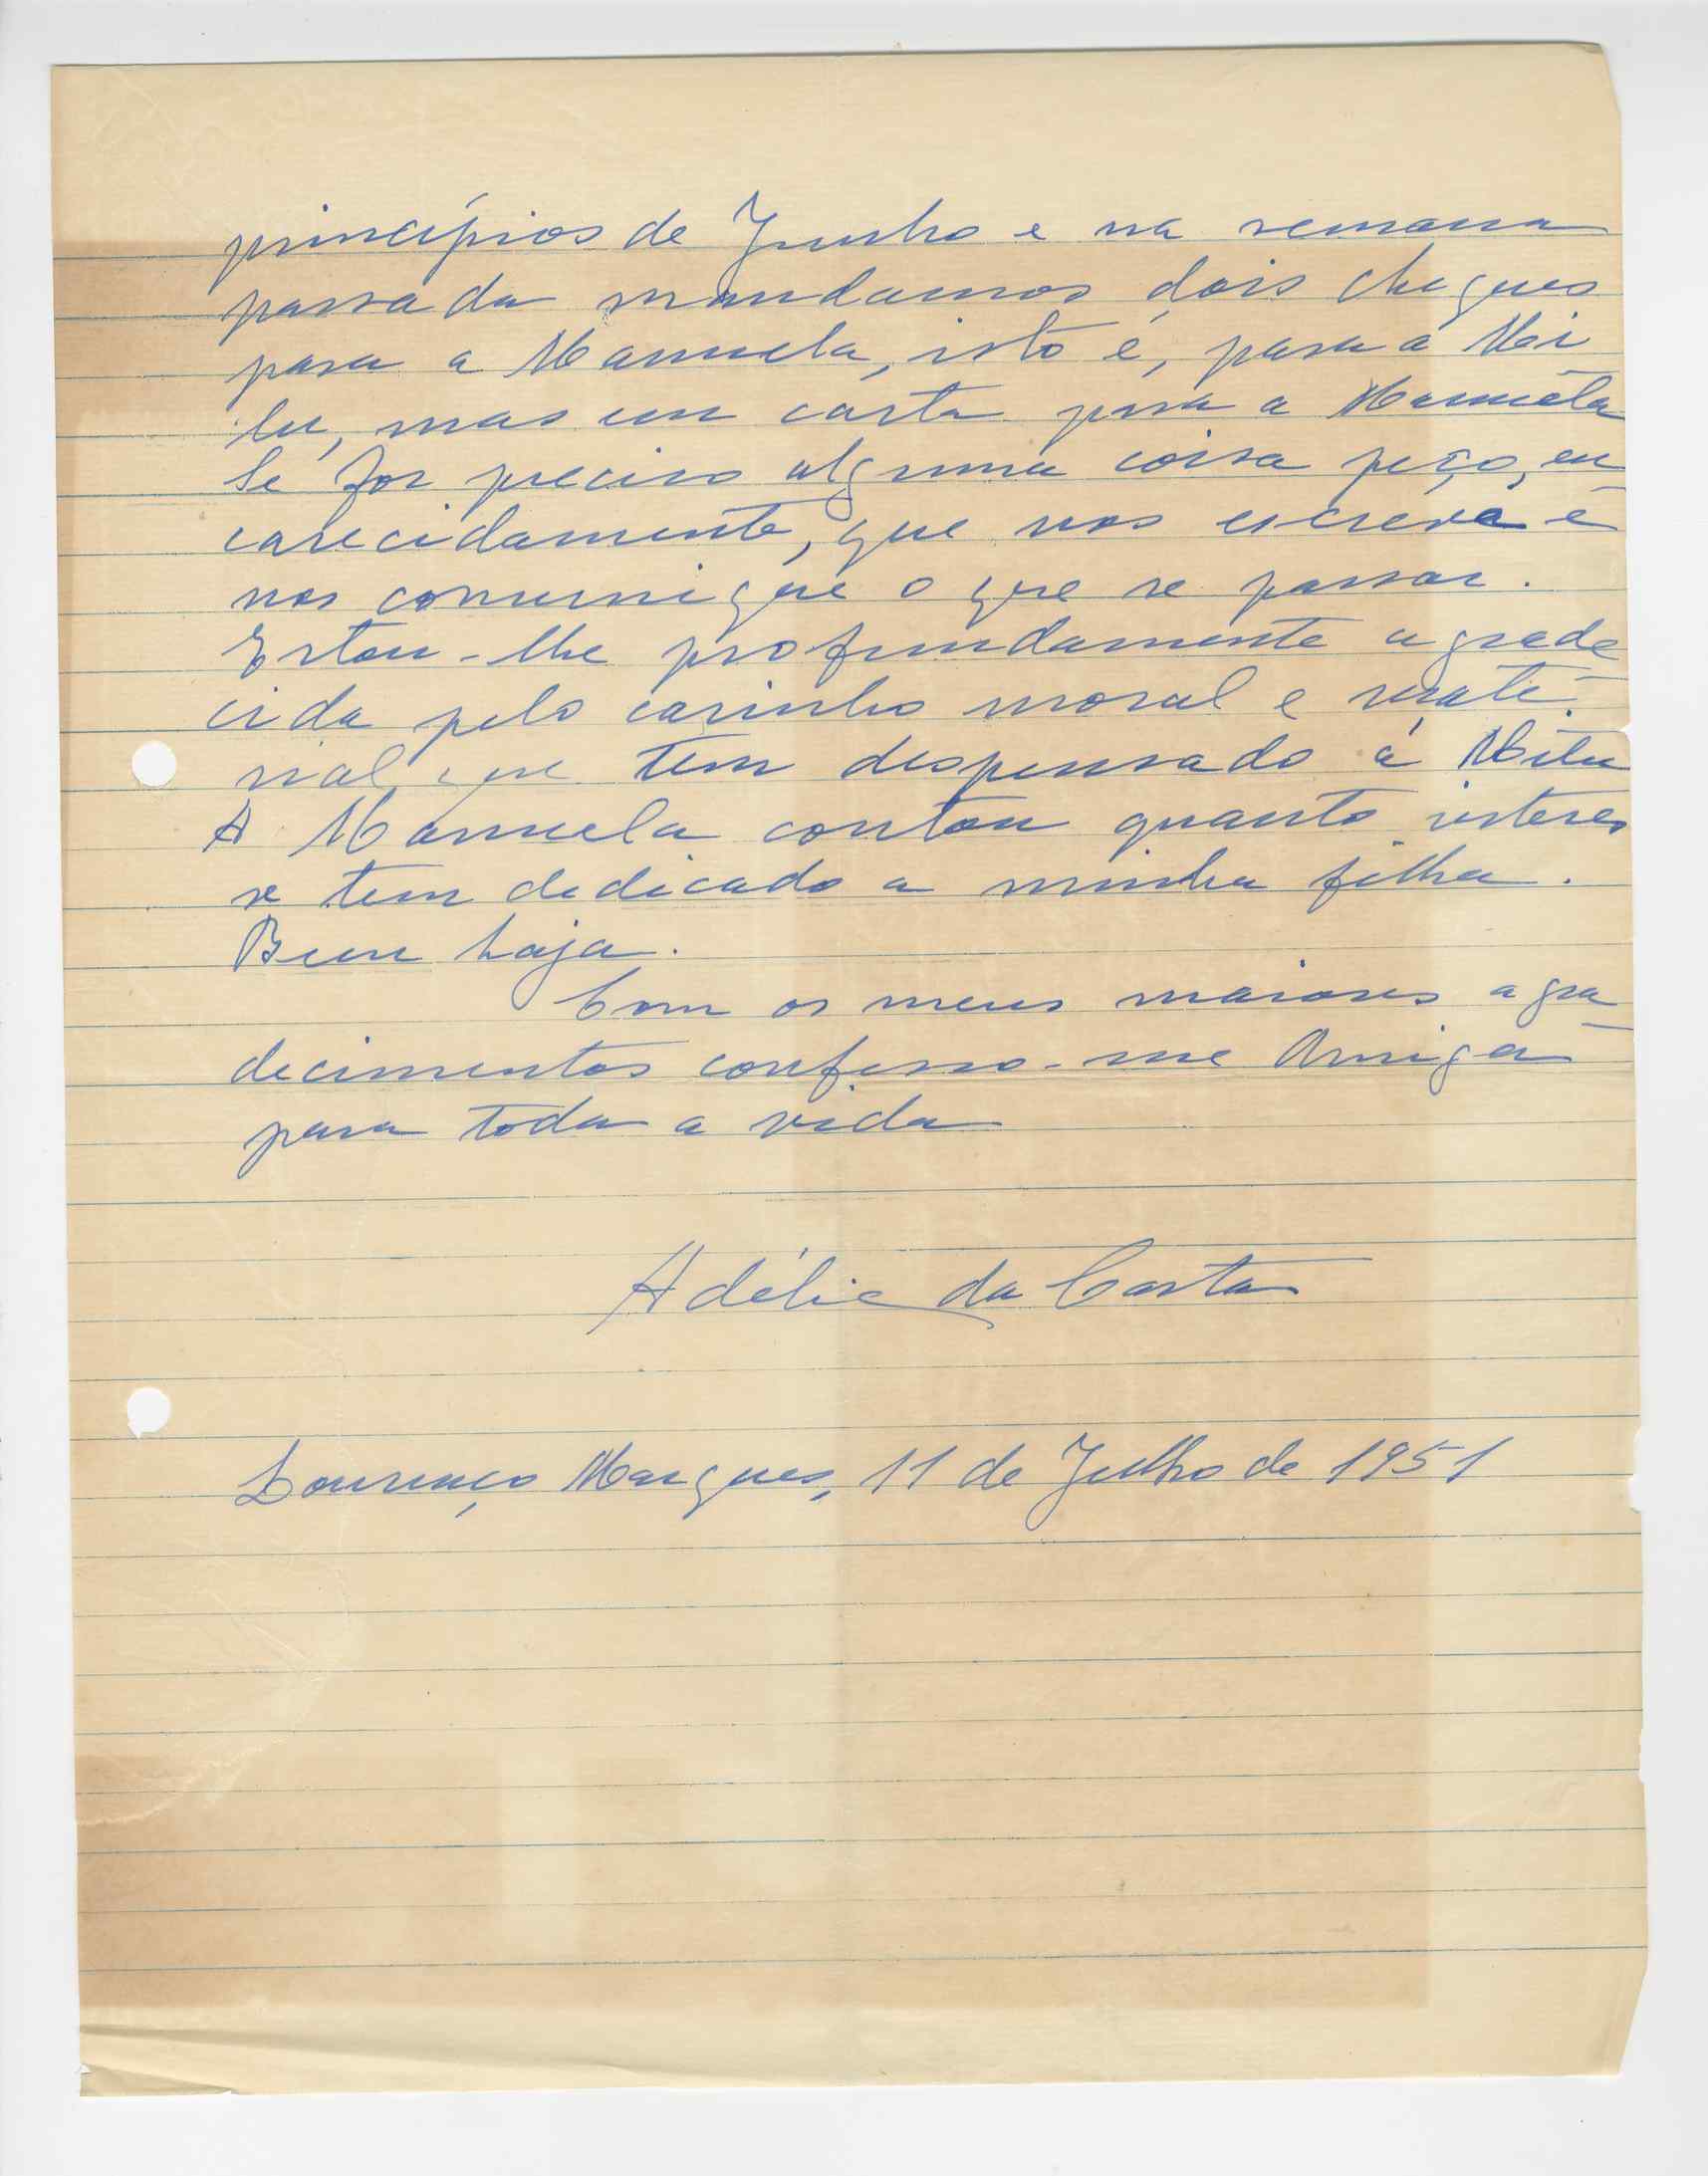 princípios de Junho e na semana
passada mandamos dois cheques
para a Manuela, isto é, para a Mi
lu, mas em carta para a Manuela
Se for preciso alguma coisa peço, en
carecidamente, que nos escreva e
nos comunique o que se passar.
Estou-lhe profundamente agrade
cida pelo carinho moral e mate-
rial que tem despensado à Milu
A Manuela contou quanto interes
se tem dedicado a minha filha.
Bem haja.
Com os meus maiores agra
decimentos confesso-me Amiga
para toda a vida
Adélia da Costa
Lourenço Marques, 11 de Julho de 1951